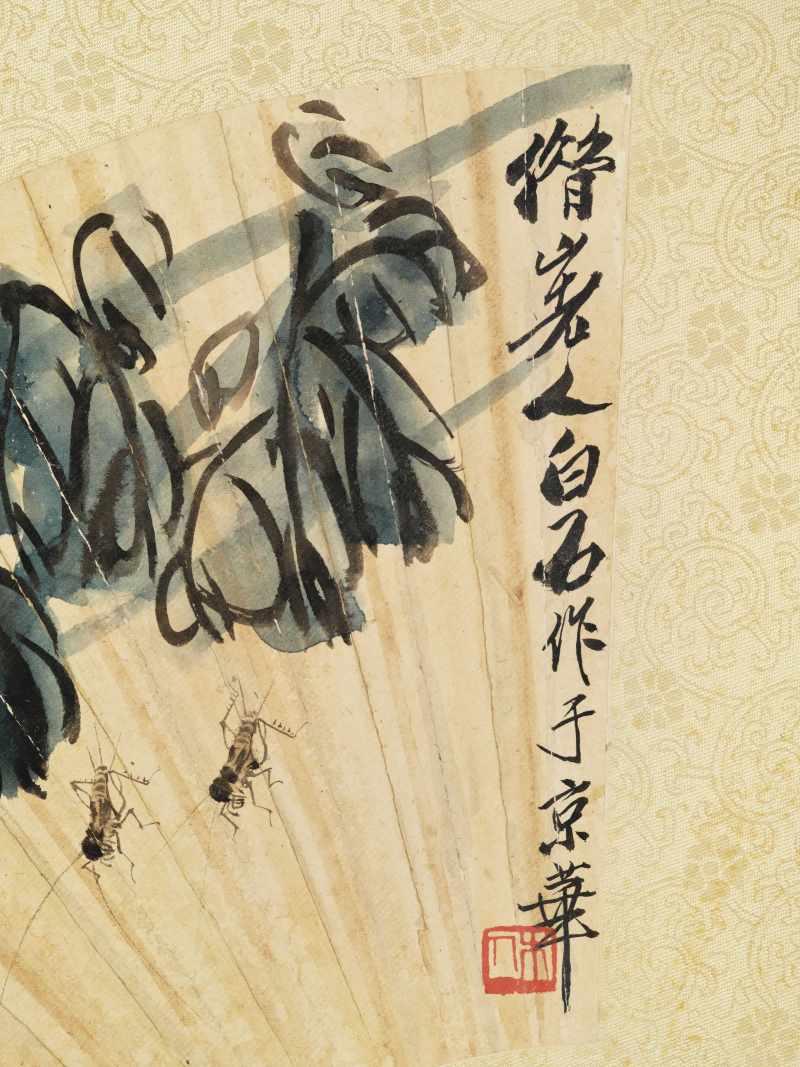 借山老人白石作于京華
木人